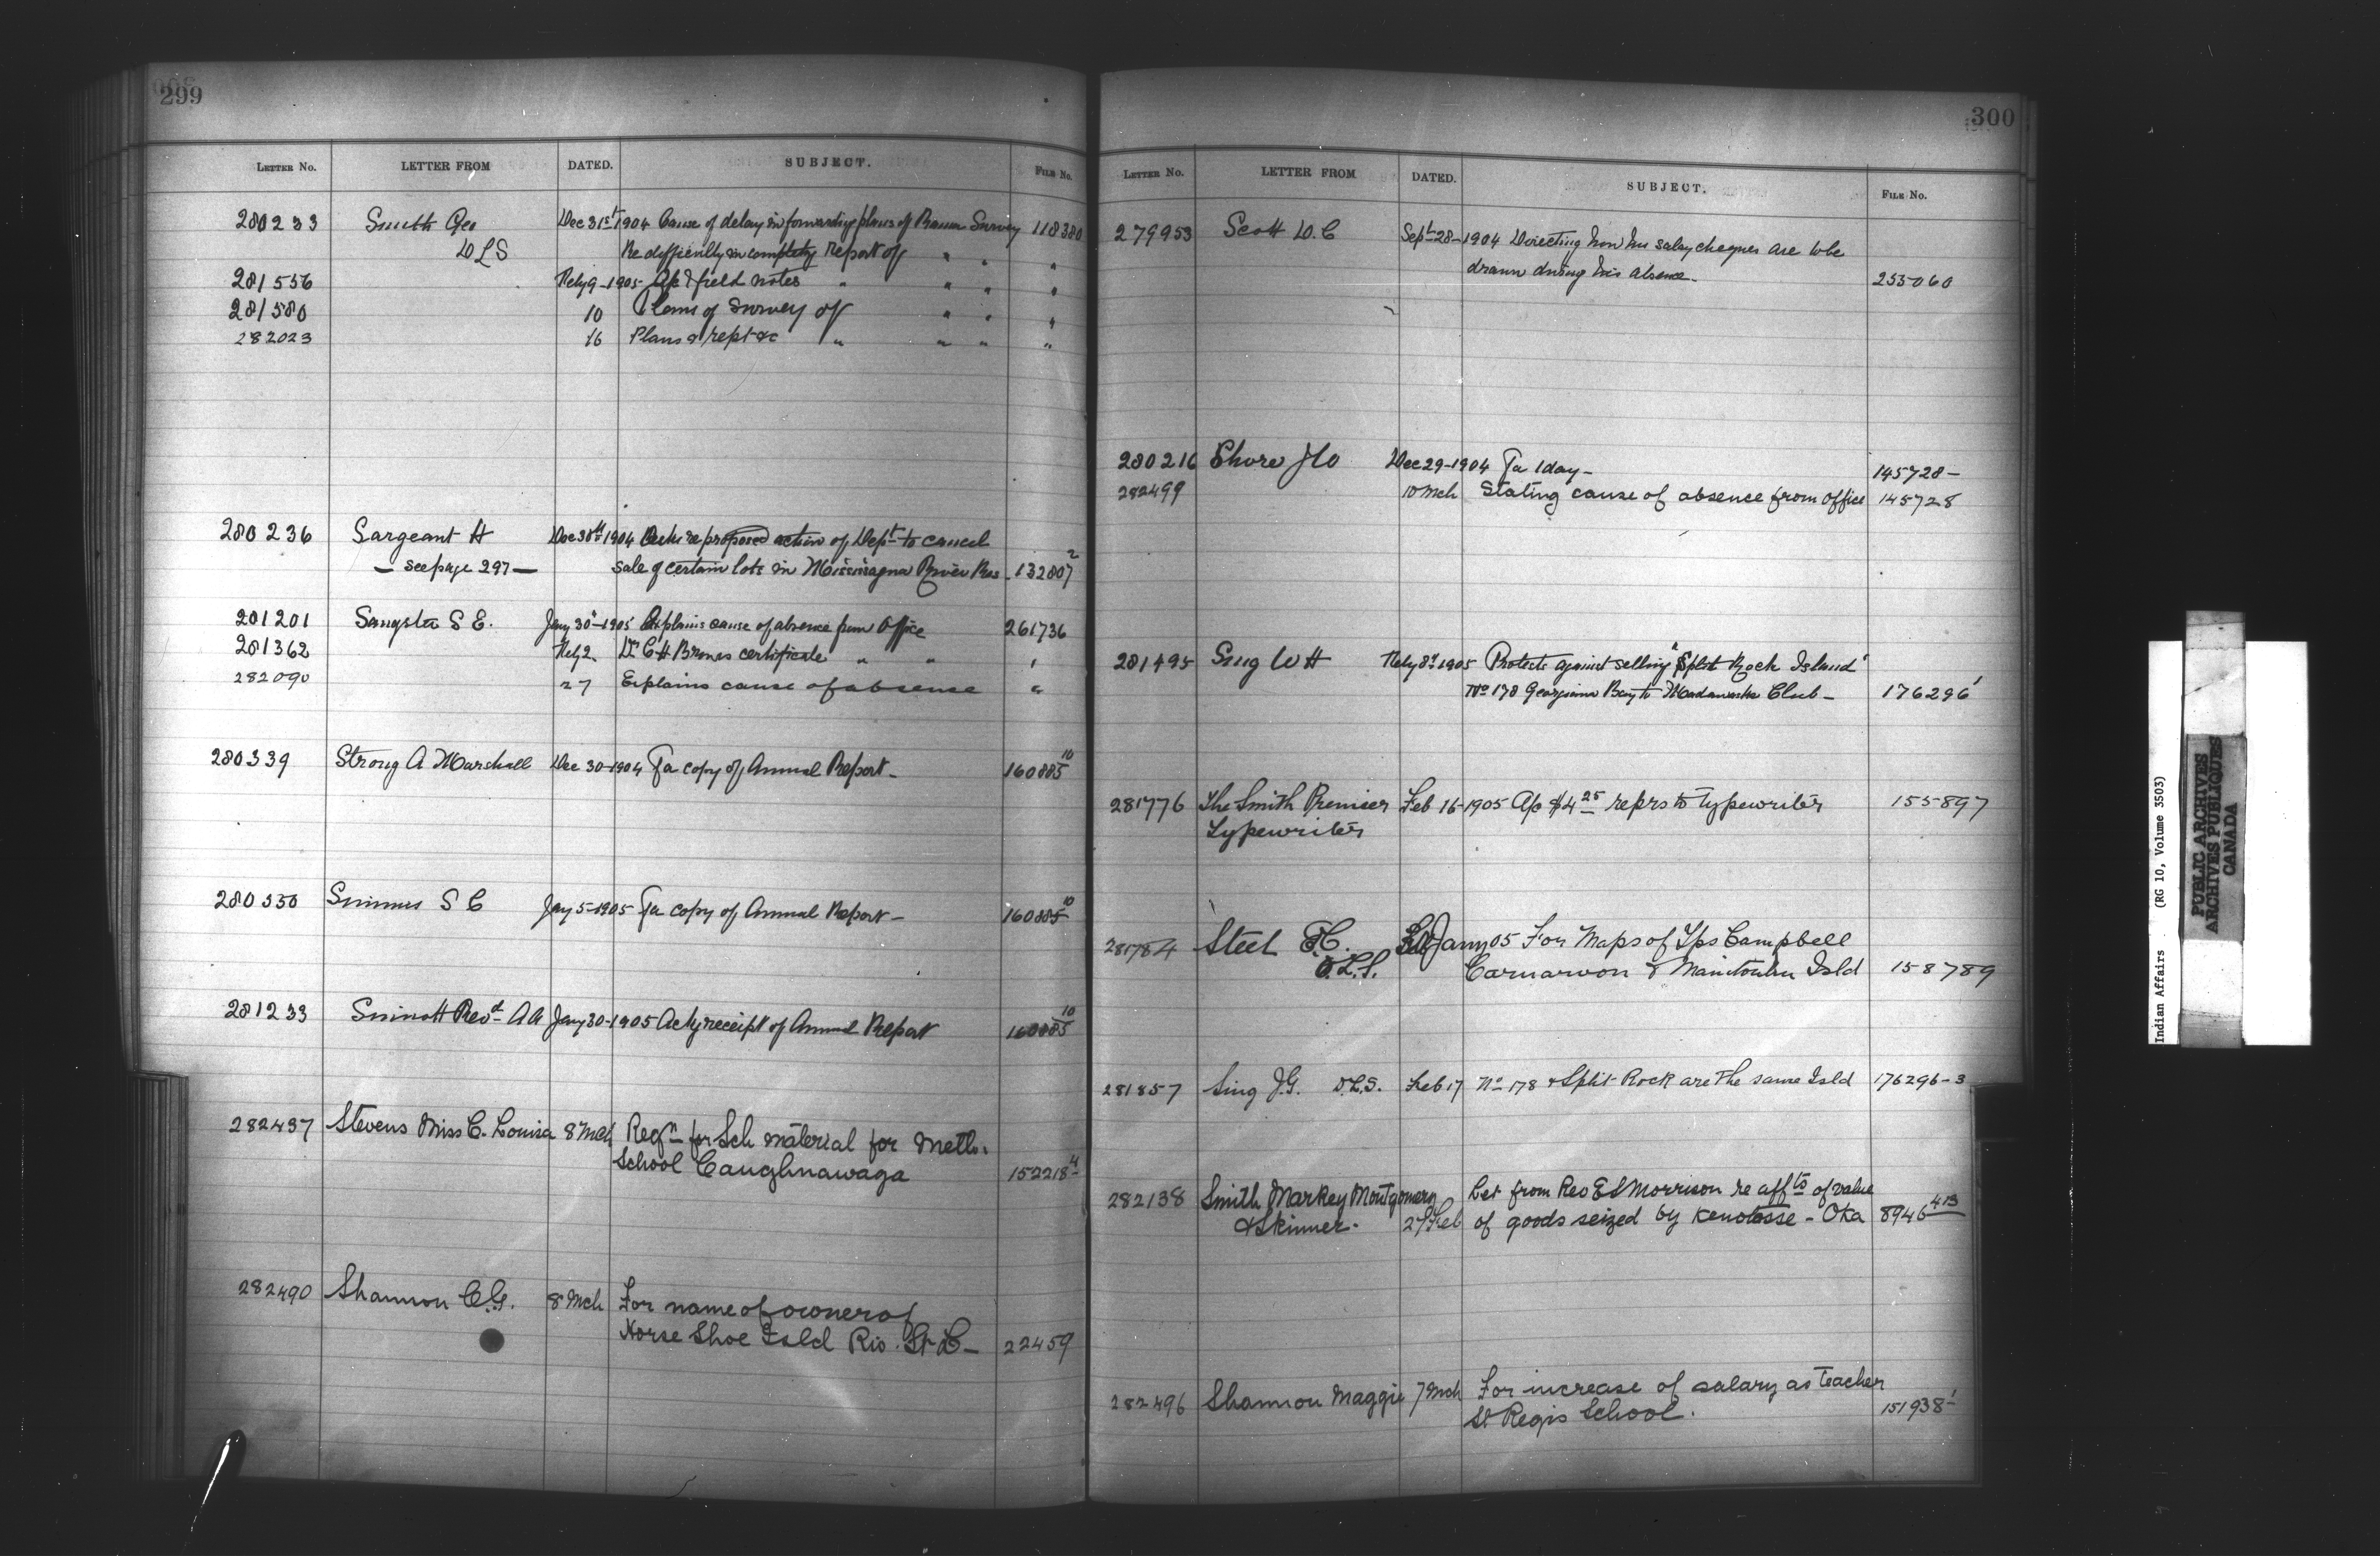 299
LETTER No. LETTER FROM DATED. SUBJECT. FILE No.
280233 Smith Geo Dec 31st 1904 Cause of delay in forwarding plans of Rama Survey 118380
DLS Re difficulty in completg Report of " " "
281556 Feby 9-1905 field notes " " " "
281580 10 Plans of Survey of " " "
282023 16 Plans & rept &c " " " "
280236 Sargeant H Dec 30th 1904 re proposed action of Dept to cancel
— see page 297 — sale of certain lots in Mississagua River Res - 132807 2
281201 Sangster S E. Jany 30-1905 Explains cause of absence from Office 261736
281362 Feby 2. Dr C H Browns certificate " " "
282090 27 Explains cause of absence "
280339 Strong A Marshall Dec 30-1904 Fa copy of Annual Report - 160885 10
280350 Simmes S C Jany 5-1905 Fa copy of Annual Report - 160885 10
281233 Sinnott Revd A A Jany 30-1905 Ackg receipt of Annual Report 160885 10
282437 Stevens Miss C. Louisa 8 Mch Reqn for Sch material for Meth.
School Caughnawaga 152218 4
282490 Shannon C.G. 8 Mch For name of owner of
Horse Shoe Isld Riv. St L - 22459
300
LETTER No. LETTER FROM DATED. SUBJECT. FILE No.
279953 Scott D. C Sept 28-1904 Directing how his salary cheques are to be
drawn during his absence - 255060
280216 Shore J W Dec 29-1904 Fa 1 day - 145728 -
282499 10 Mch Stating cause of absence from office 145728
281495 Sing W H Feby 8th 1905 Protests against selling "Split Rock Island"
No 178 Georgian Bay to Madawaska Club - 176296 1
281776 The Smith Premier Feb 16-1905 A/c $4 25 reprs to Typewriter 155897
Typewriter
281784 Steel Jany 05 For Maps of Tps Campbell
O.L.S. Carnarvon & Manitoulin Isld 158789
281857 Sing J.G. D.L.S. Feb 17 No 178 & Split Rock are the same Isld 176296-3
282138 Smith Markey Montgomery Let from Rev E S Morrison re affts of value
& Skinner. 27 Feb of goods seized by Kenotosse - Oka 8946 413
282496 Shannon Maggie 7 Mch For increase of salary as Teacher
St Regis School. 151938 1
Indian Affairs (RG 10, Volume 3503)
PUBLIC ARCHIVES
ARCHIVES PUBLIQUES
CANADA